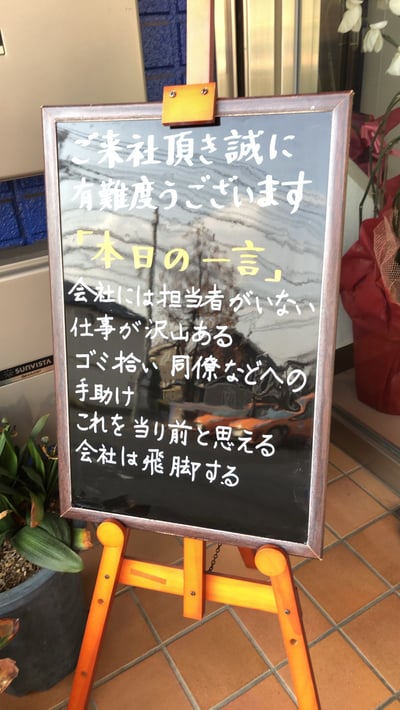 ご来社頂き誠に
有難度うございます
「本日の一言」
会社には担当者がいない
仕事が沢山ある
ゴミ拾い 同僚などへの
手助け
これを当り前と思える
会社は飛脚する
SUNVISTA